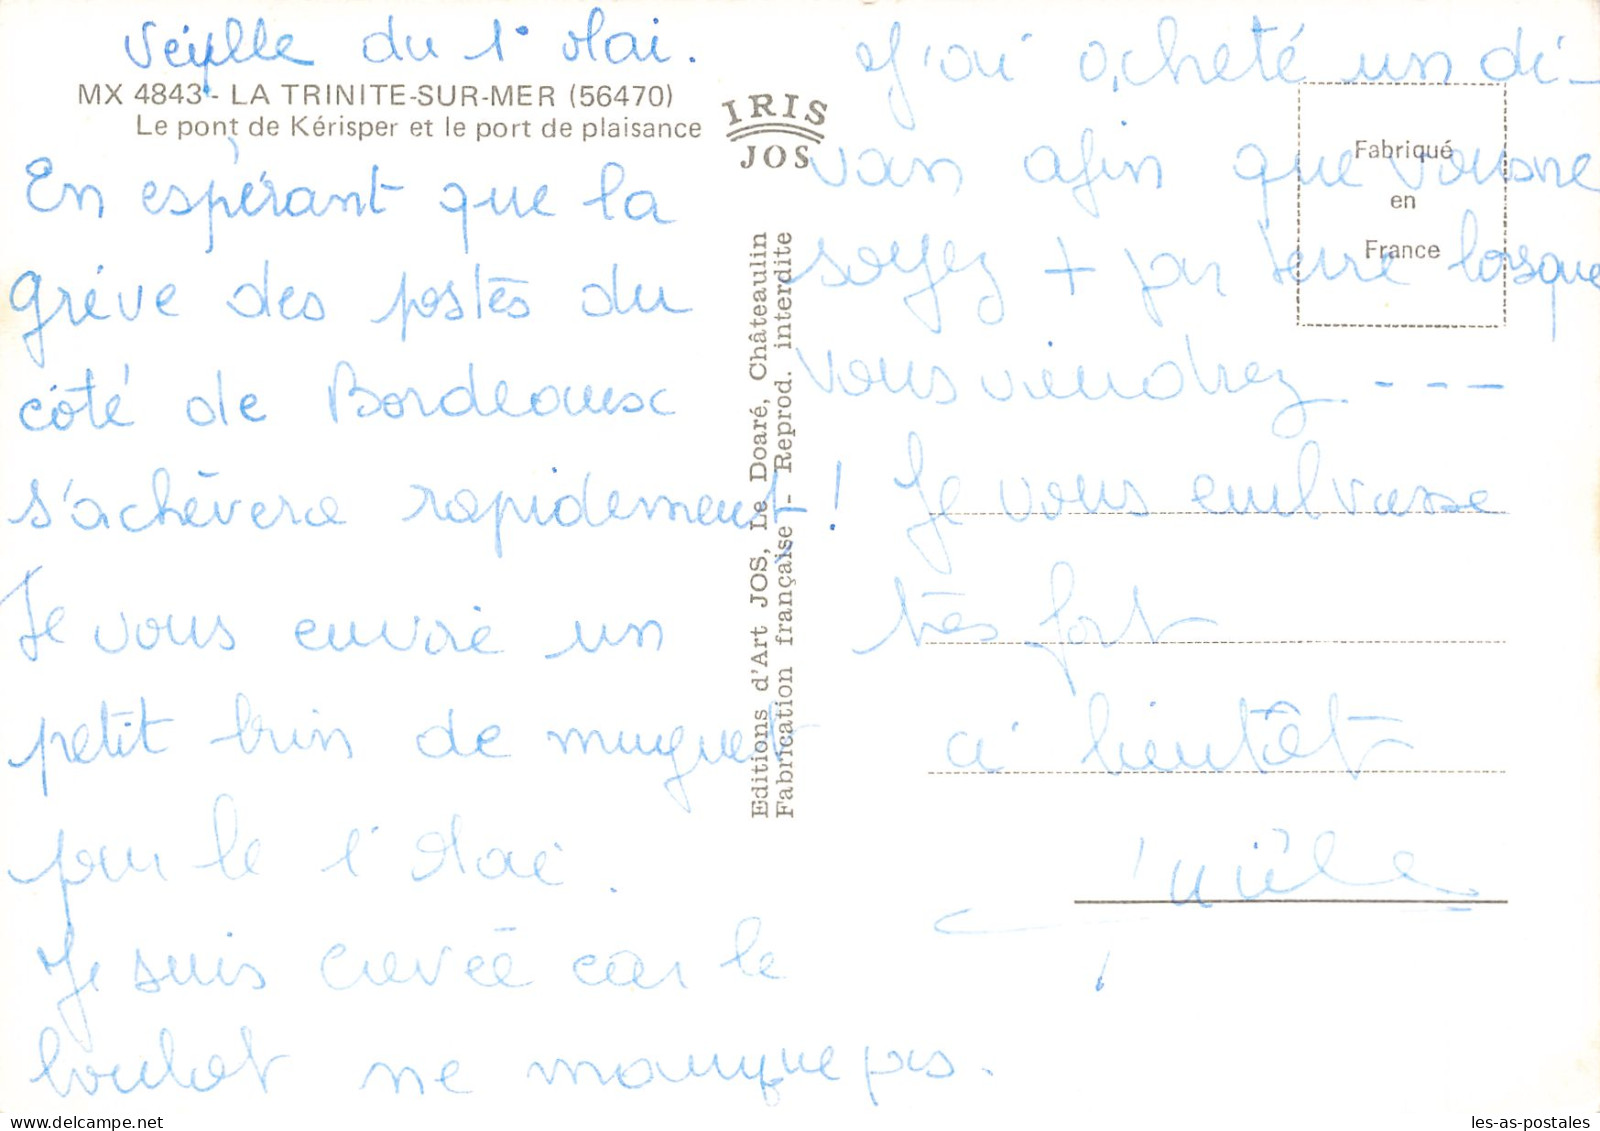 Veille du 1° Mai.
MX 4843 - LA TRINITE-SUR-MER (56470)
Le pont de Kérisper et le port de plaisance
En espérant que la
grève des postes du
côté de Bordeaux
s'achèvera rapidement !
Je vous envoie un
petit brin de muguet
pour le 1° Mai.
Je suis crevée car le
boulot ne manque pas.
IRIS
JOS
Editions d'Art JOS, Le Doaré, Châteaulin
Fabrication française - Reprod. interdite
J'ai acheté un di-
van afin que vous ne
soyez + par terre lorsque
vous viendrez. ---
Je vous embrasse
très fort
à bientôt
Fabriqué
en
France
les-as-postales